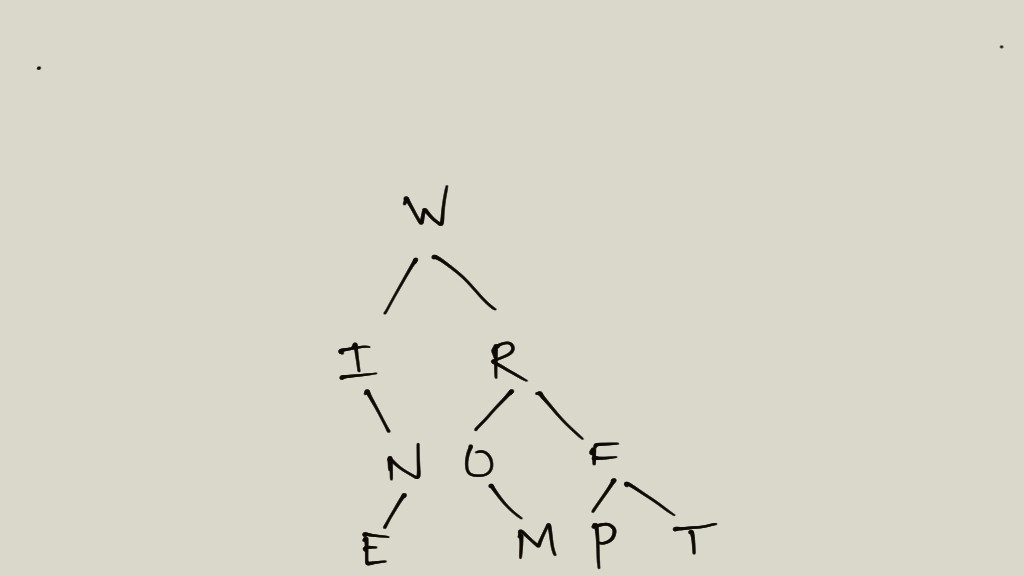 W
I R
N O F
E M P T